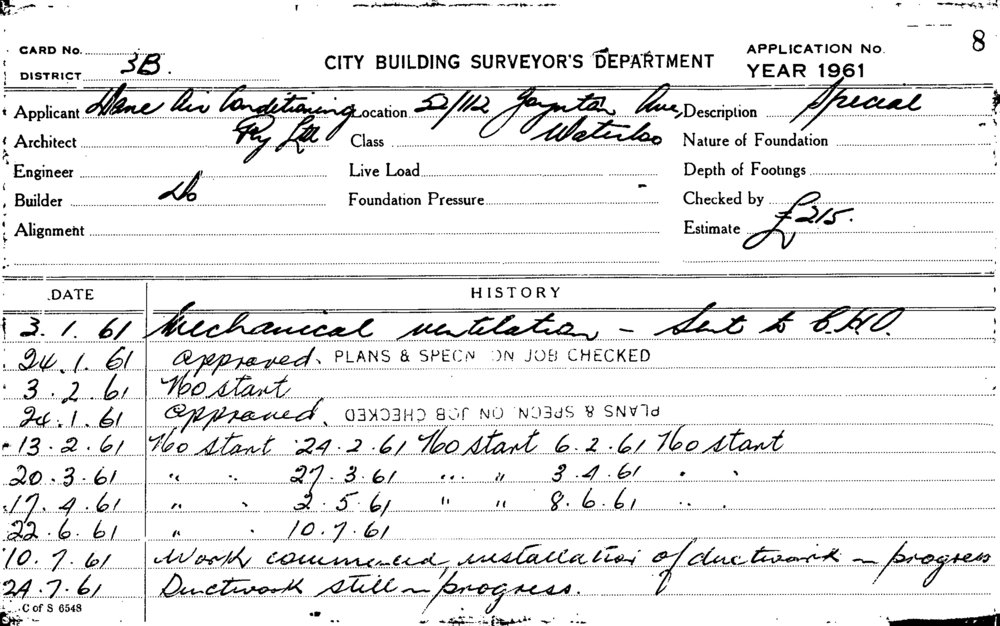 8
CARD No.
APPLICATION No.
DISTRICT 3B.
CITY BUILDING SURVEYOR'S DEPARTMENT
YEAR 1961
Applicant Dane Air Conditioning Location 52/112 Joynton Ave, Description Special
Architect Pty Ltd Class Waterloo Nature of Foundation
Engineer Live Load Depth of Footings
Builder Do Foundation Pressure - Checked by
Alignment Estimate £215.
DATE HISTORY
3.1.61 Mechanical ventilation – Sent to C.H.O.
24.1.61 Approved. PLANS & SPECN ON JOB CHECKED
3.2.61 No start
24.1.61 Approved. PLANS & SPECN. ON JOB CHECKED
13.2.61 No start 24.2.61 No start 6.2.61 No start
20.3.61 " " 27.3.61 " " 3.4.61 " "
17.4.61 " " 2.5.61 " " 8.6.61 "
22.6.61 " " 10.7.61
10.7.61 Work commenced, installation of ductwork in progress
24.7.61 Ductwork still in progress.
C of S 6548